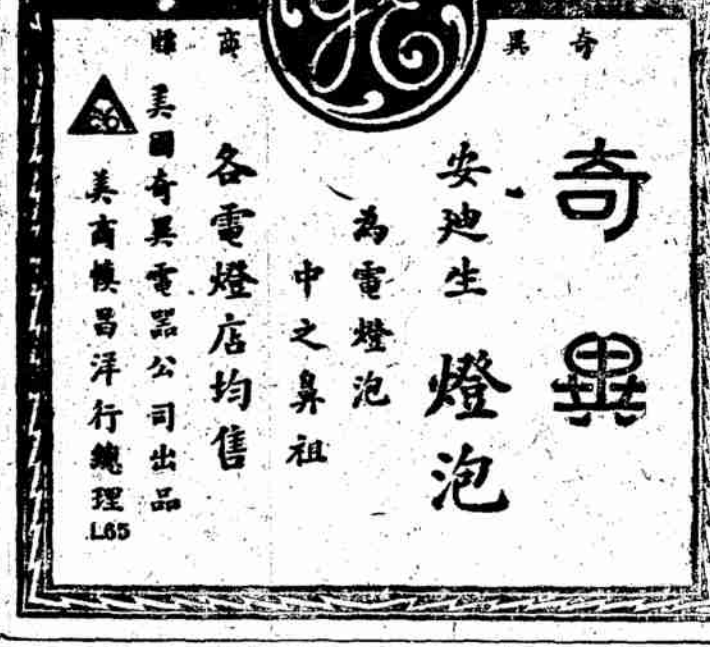 奇異
商標
GE
奇異
安廸生燈泡
為電燈泡
中之鼻祖
各電燈店均售
美國奇異電器公司出品
美商慎昌洋行總理
L65